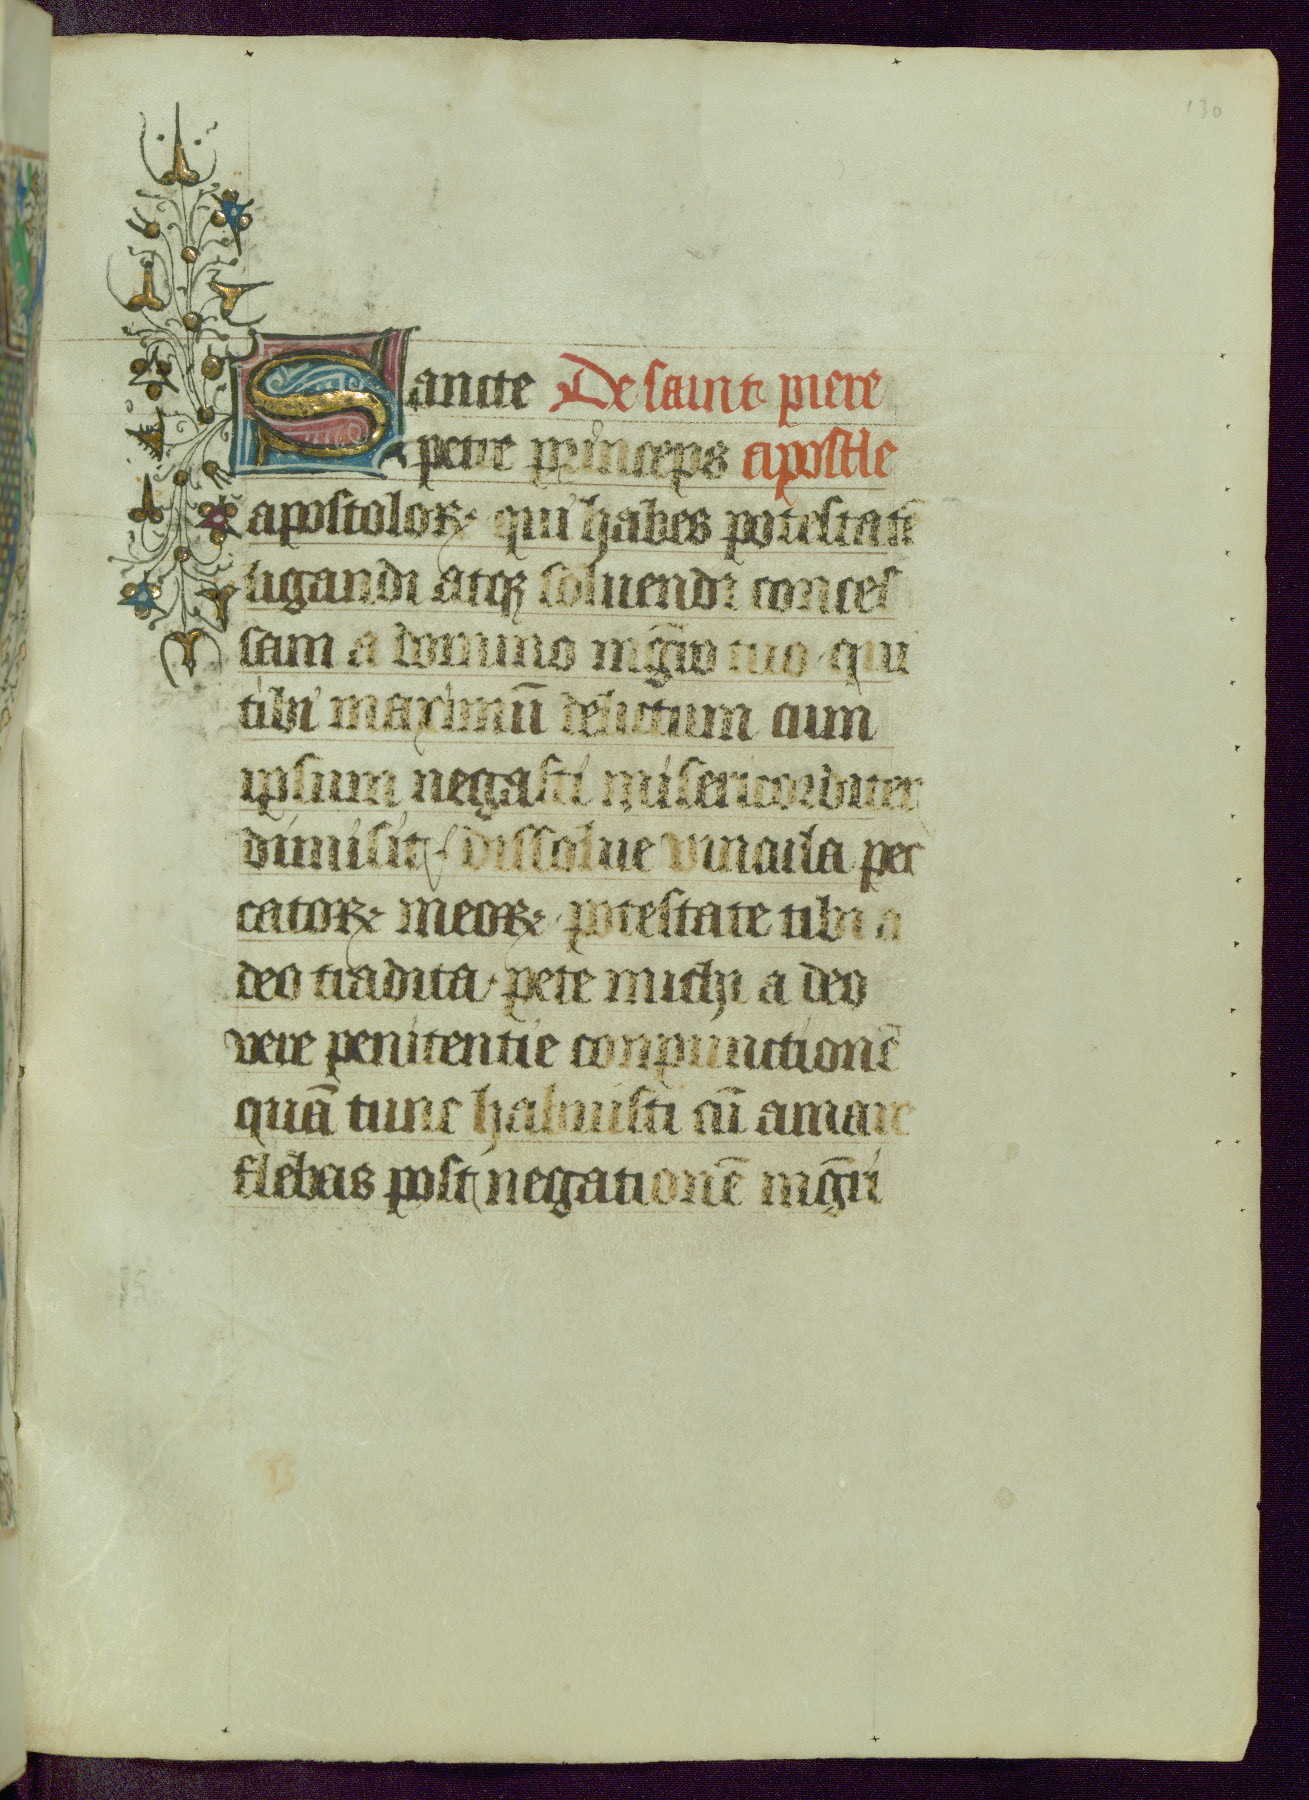 130
Sancte De saint piere
petre princeps apostle
apostoloꝝ qui habes potestatē
ligandi atqꝫ soluendi conces
sam a domino mgr̄o tuo qui
tibi maximū delictum cum
ipsum negasti misericorditer
dimisit / dissolue vincula pec
catoꝝ meoꝝ potestate tibi a
deo tradita / pete michi a deo
vere penitentie conpunctionē
quā tunc habuisti cū amare
flebas post negationē mgr̄i